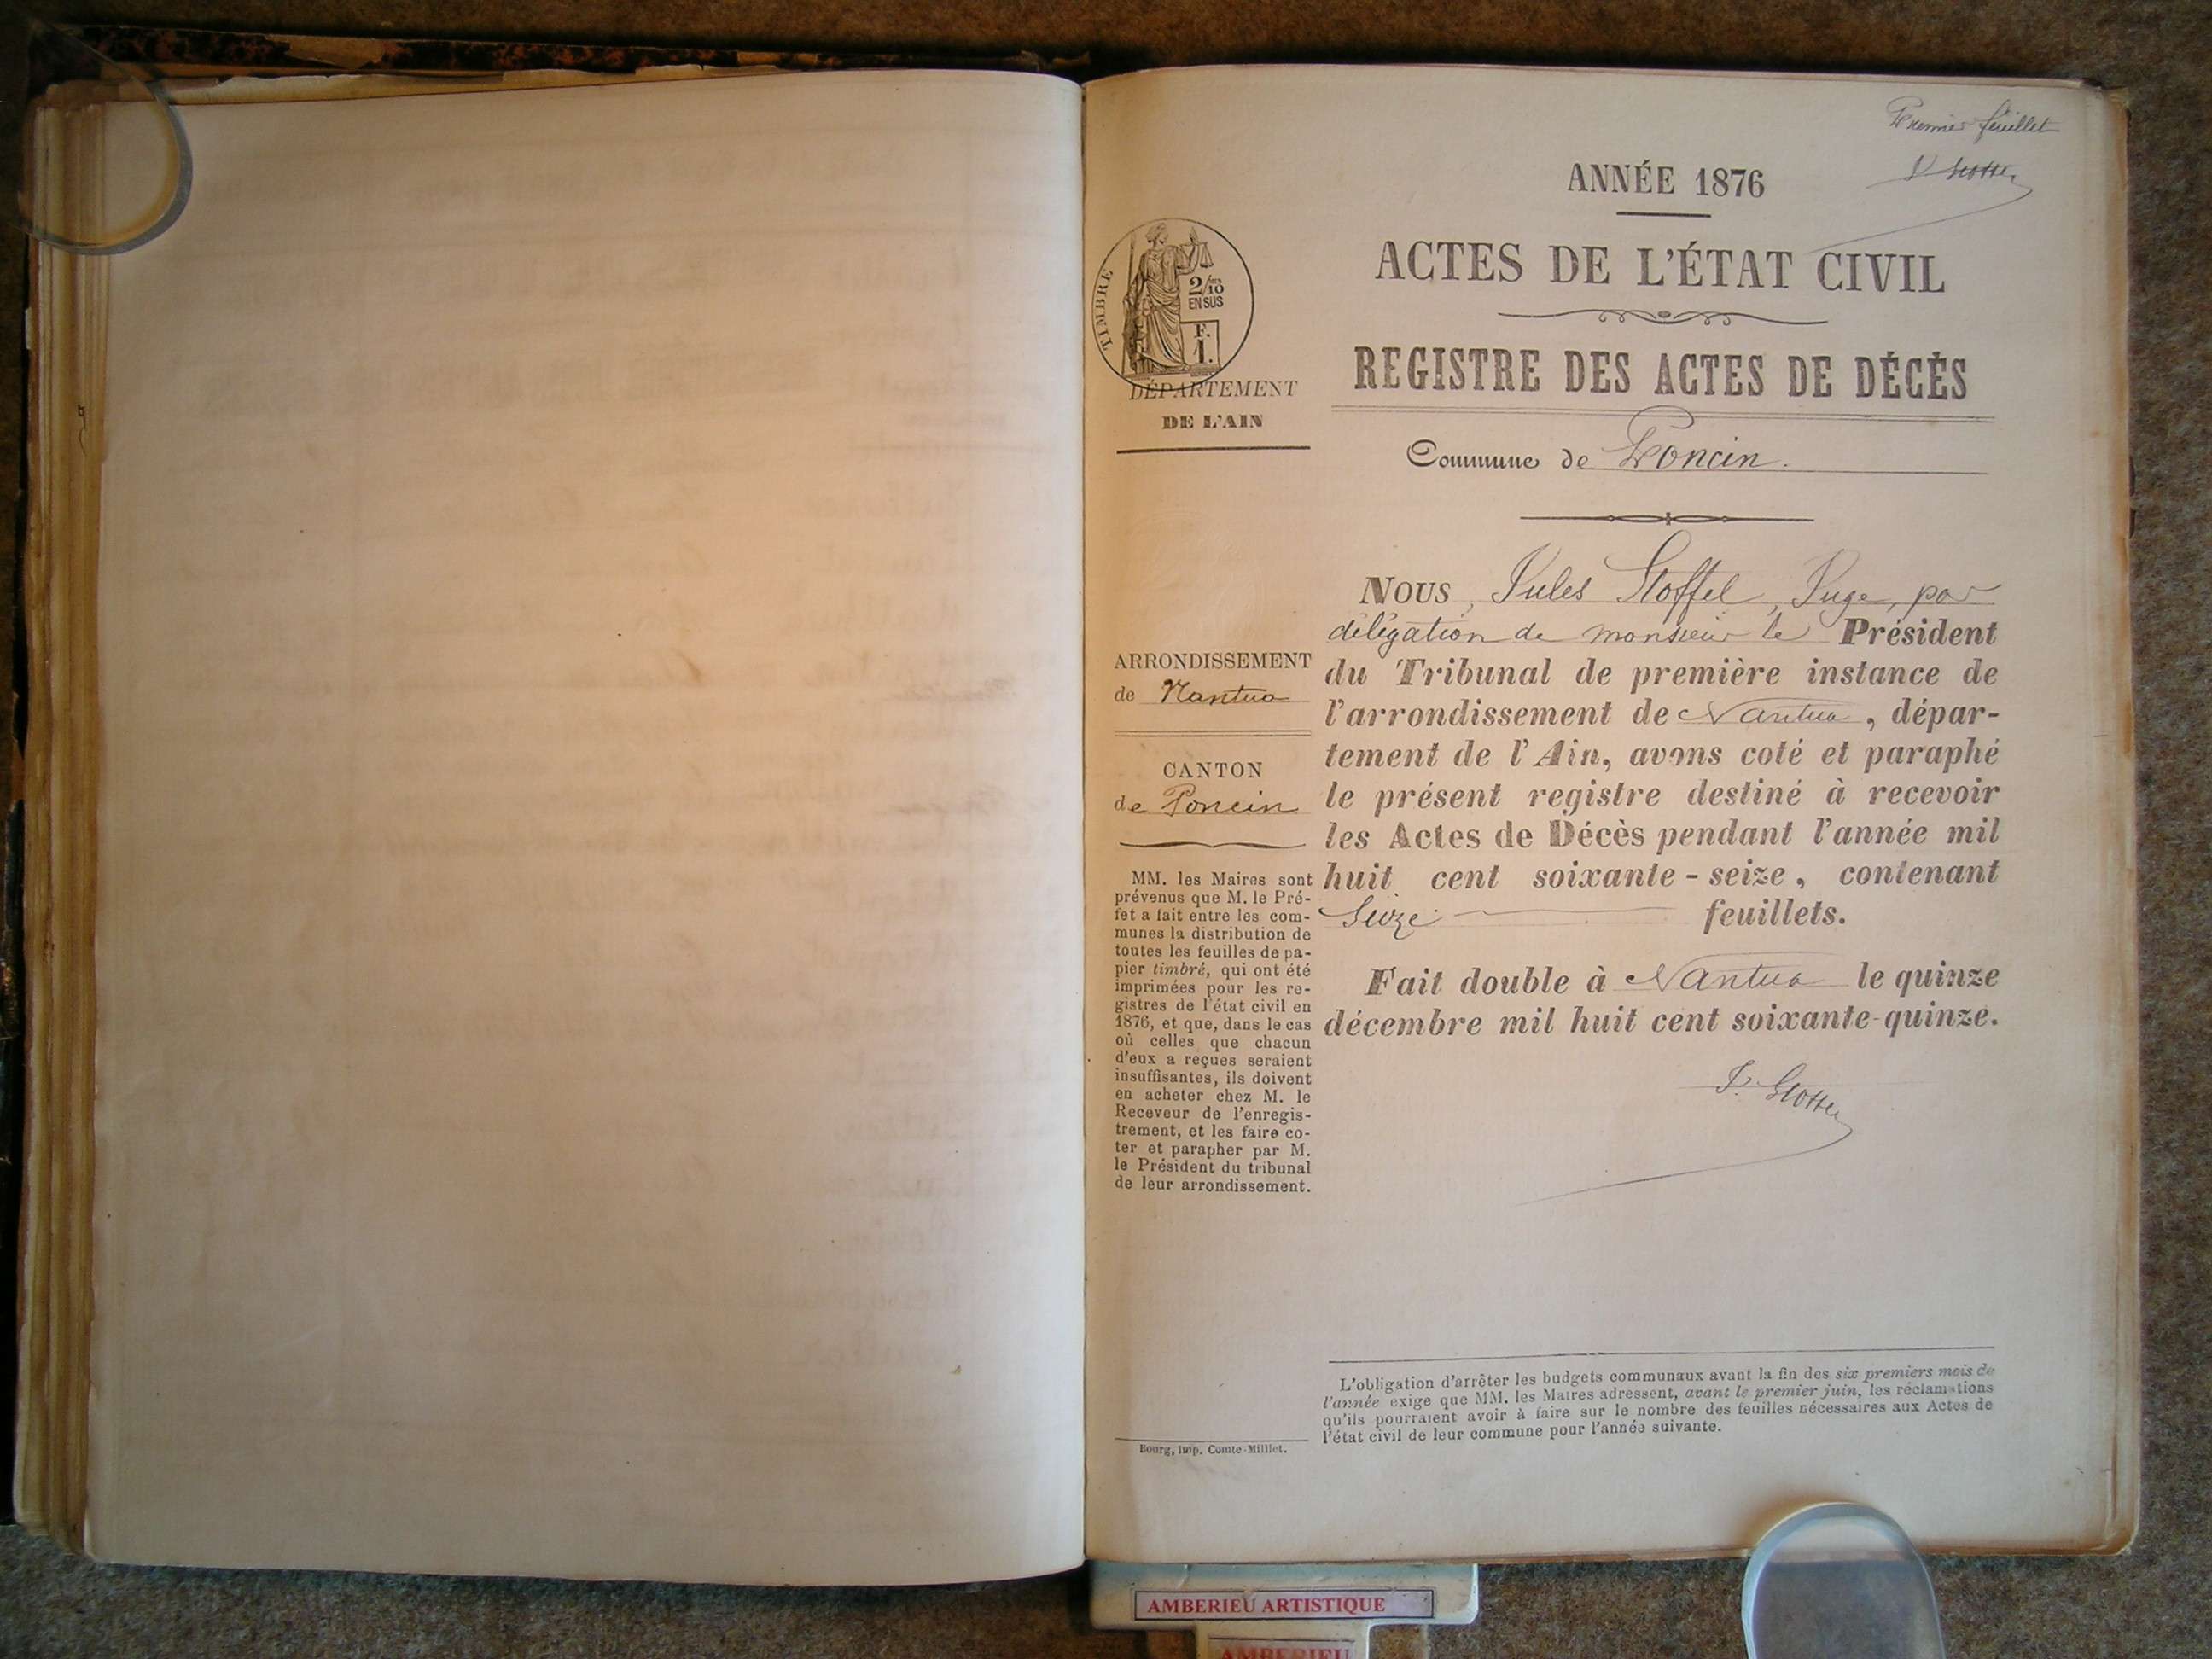 Premier feuillet
ANNÉE 1876
ACTES DE L'ÉTAT CIVIL
REGISTRE DES ACTES DE DÉCÈS
Commune de Poncin.
TIMBRE
2/10
EN SUS
F.
1.
DÉPARTEMENT
DE L'AIN
ARRONDISSEMENT
de Nantua
CANTON
de Poncin
MM. les Maires sont
prévenus que M. le Pré-
fet a fait entre les com-
munes la distribution de
toutes les feuilles de pa-
pier timbré, qui ont été
imprimées pour les re-
gistres de l'état civil en
1876, et que, dans le cas
où celles que chacun
d'eux a reçues seraient
insuffisantes, ils doivent
en acheter chez M. le
Receveur de l'enregis-
trement, et les faire co-
ter et parapher par M.
le Président du tribunal
de leur arrondissement.
Bourg, imp. Comte-Milliet.
NOUS, Jules Stoffel, Juge, par
délégation de monsieur le Président
du Tribunal de première instance de
l'arrondissement de Nantua, dépar-
tement de l'Ain, avons coté et paraphé
le présent registre destiné à recevoir
les Actes de Décès pendant l'année mil
huit cent soixante-seize, contenant
Seize feuillets.
Fait double à Nantua le quinze
décembre mil huit cent soixante-quinze.
J. Stoffel
L'obligation d'arrêter les budgets communaux avant la fin des six premiers mois de
l'année exige que MM. les Maires adressent, avant le premier juin, les réclamations
qu'ils pourraient avoir à faire sur le nombre des feuilles nécessaires aux Actes de
l'état civil de leur commune pour l'année suivante.
AMBERIEU ARTISTIQUE
AMBERIEU